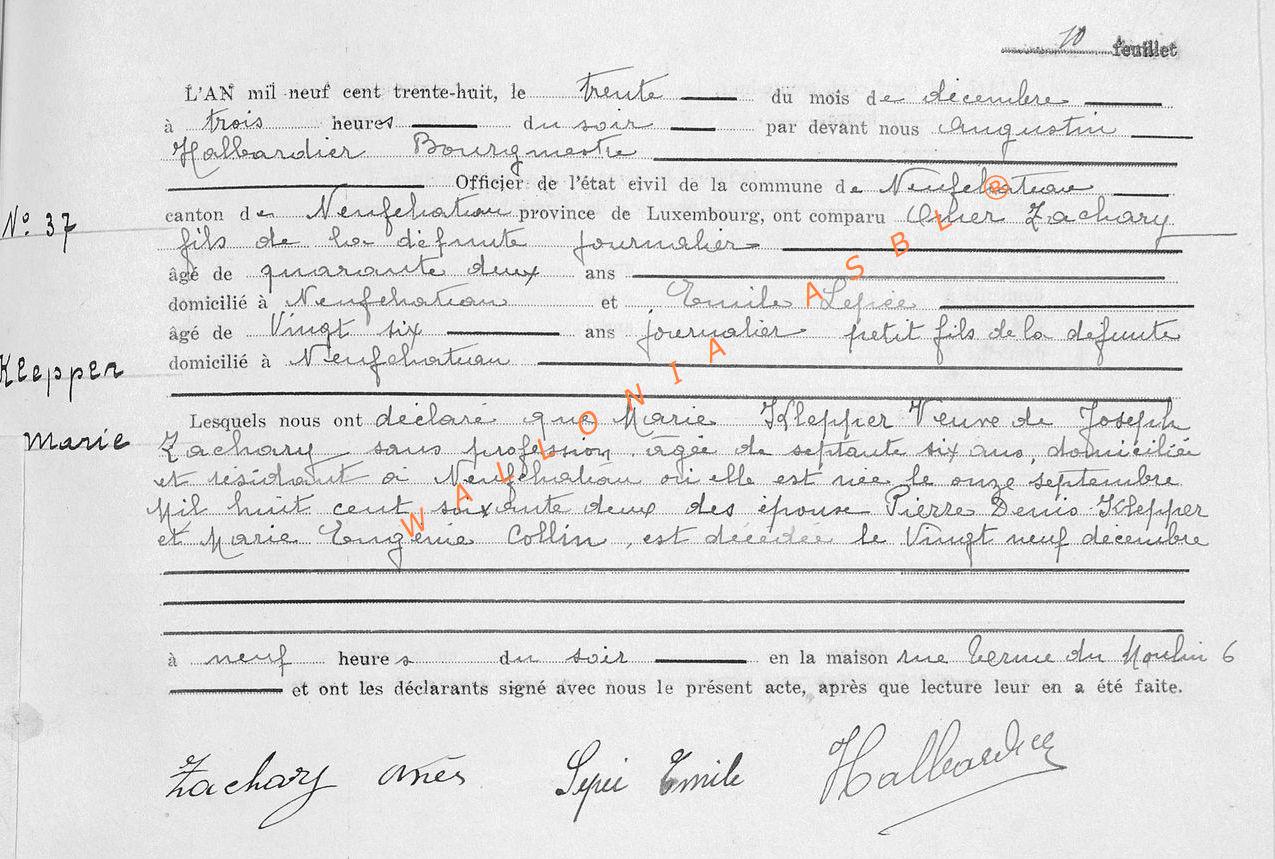 10 feuillet
L'AN mil neuf cent trente-huit, le trente du mois de décembre
à trois heures du soir par devant nous Augustin
Halbardier Bourgmestre
Officier de l'état civil de la commune de Neufchateau
N° 37
canton de Neufchateau province de Luxembourg, ont comparu Zachary
fils de la défunte journalier
âgé de quarante deux ans
domicilié à Neufchateau et Emile Lepée
âgé de Vingt six ans journalier petit fils de la défunte
domicilié à Neufchateau
Klepper
Marie
Lesquels nous ont déclaré que Marie Klepper Veuve de Joseph
Zachary sans profession, âgée de septante six ans, domiciliée
et résidant à Neufchateau où elle est née le onze septembre
Mil huit cent soixante deux des époux Pierre Denis Klepper
et Marie Eugénie Collin, est décédée le Vingt neuf décembre
à neuf heures du soir en la maison rue du Moulin 6
et ont les déclarants signé avec nous le présent acte, après que lecture leur en a été faite.
Zachary Emile Halbardier
WALLONIA ASBL ®